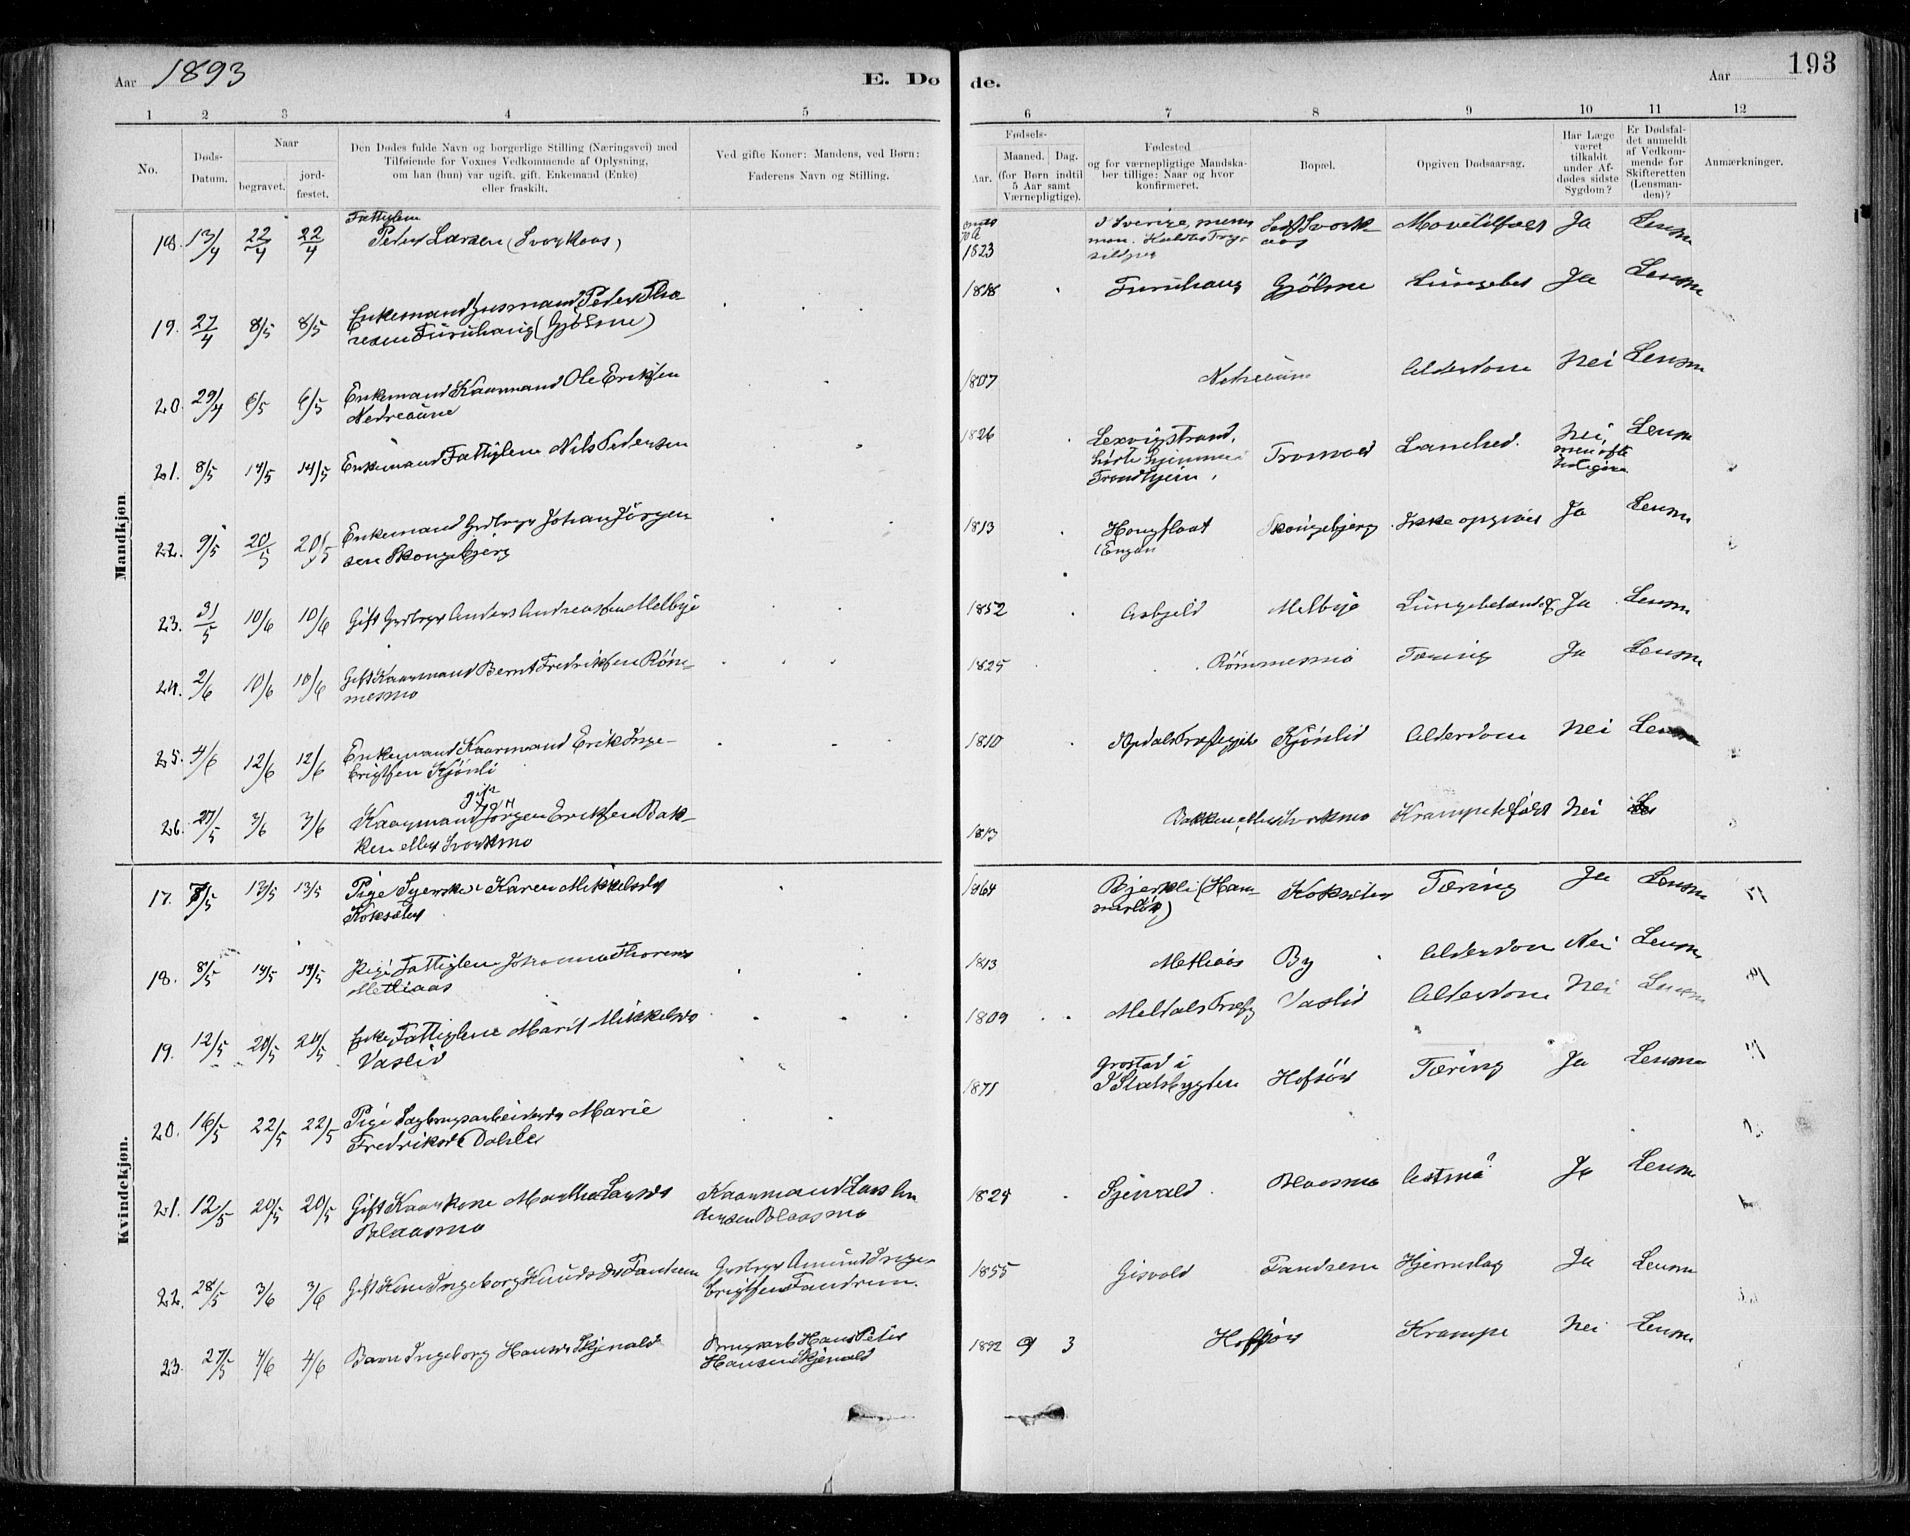 Aar 1893
E. Dø
de.
Aar
193
1 2 3 4 5 6 7 8 9 10 11 12
No.
Døds-
Datum.
Naar
begravet.
jord-
fæstet.
Den Dødes fulde Navn og borgerlige Stilling (Næringsvei) med
Tilføiende for Voxnes Vedkommende af Oplysning,
om han (hun) var ugift, gift, Enkemand (Enke)
eller fraskilt.
Ved gifte Koner: Mandens, ved Børn:
Faderens Navn og Stilling.
Fødsels-
Aar.
Maaned. Dag.
(for Børn indtil
5 Aar samt
Værnepligtige).
Fødested
og for værnepligtige Mandska-
ber tillige: Naar og hvor
konfirmeret.
Bopæl.
Opgiven Dødsaarsag.
Har Læge
været
tilkaldt
under Af-
dødes sidste
Sygdom?
Er Dødsfal-
det anmeldt
af Vedkom-
mende for
Skifteretten
(Lensman-
den)?
Anmærkninger.
Mandkjøn
Fattiglem
18. 13/4 22/4 22/4 Peder Larsen (Svorkaas) 1823 Ja Lensm
19. 27/4 8/5 8/5 Enkemand Husmand Peder Tho
resen Furuhaug (Gjølme) 1818 Furuhaug Gjølme Ja Lensm
20. 29/4 6/5 6/5 Enkemand Kaarmand Ole Eriksen
Nedreaune 1807 Nedreaune Alderdom Nei Lensm
21. 8/5 14/5 14/5 Enkemand Fattiglem Nils Pedersen 1826 Lexvigstrand,
Trondhjem, Lamhed. Nei, Lensm
22. 9/5 20/5 20/5 Enkemand Gbrbrgr Johan Jørgen
sen Skongebjerg 1813 Hongslaat Skongebjerg Ikke opgivet Ja Lensm
(Engan
23. 31/5 10/6 10/6 Gift Gbrbrgr Anders Andreassen Melbye 1852 Asbjeld Melbye Ja Lensm
24. 2/6 10/6 10/6 Gift Kaarmand Bernt Fredriksen Røm-
mesmo 1825 Rømmesmo Tæring Ja Lensm
25. 4/6 12/6 12/6 Enkemand Kaarmand Erik Inge-
brigtsen Kjønli 1810 Kjønlid Alderdom Nei Lensm
gift
26. 27/5 3/6 3/6 Kaarmand Jørgen Eriksen Bak-
ken eller Svorkmo 1813 Bakken eller Svorkmo Nei
Kvindekjøn.
17. 5/5 13/5 13/5 Pige Syerske Karen Mikkelsdr
Koksæter 1864 Bjerkli (Ham- Koksæter Tæring Ja Lensm
18. 8/5 14/5 14/5 Pige Fattiglem Johanna Thoresdr
Metliaas 1813 Metliaas By Alderdom Nei Lensm
19. 12/5 20/5 20/5 Enke Fattiglem Marit Mikkelsdr
Vaslid 1809 Meldals Præstg Vaslid Alderdom Nei Lensm
20. 16/5 22/5 22/5 Pige Sagbrugsarbeiderdr Marie
Fredriksdr Dahle 1871 Grostad i
Stadsbygden Hofsør Tæring Ja Lensm
21. 12/5 20/5 20/5 Gift Kaarkone Marthe Larsdr
Blaasmo Kaarmand Lars An
dersen Blaasmo 1824 Blaasmo Astma? Ja Lensm
22. 28/5 3/6 3/6 Gift Kone Ingeborg Knudsdr Fandrem Gbrbrgr Amund Inge-
brigtsen Fandrem. 1855 Gisvold Fandrem Hjerneslag Ja Lensm
23. 27/5 4/6 4/6 Barn Ingeborg Hansdr Skjenald Brugsarb Hans Peter
Hansen Skjenald 1892 9 3 Hofsør Krampe Nei Lensm